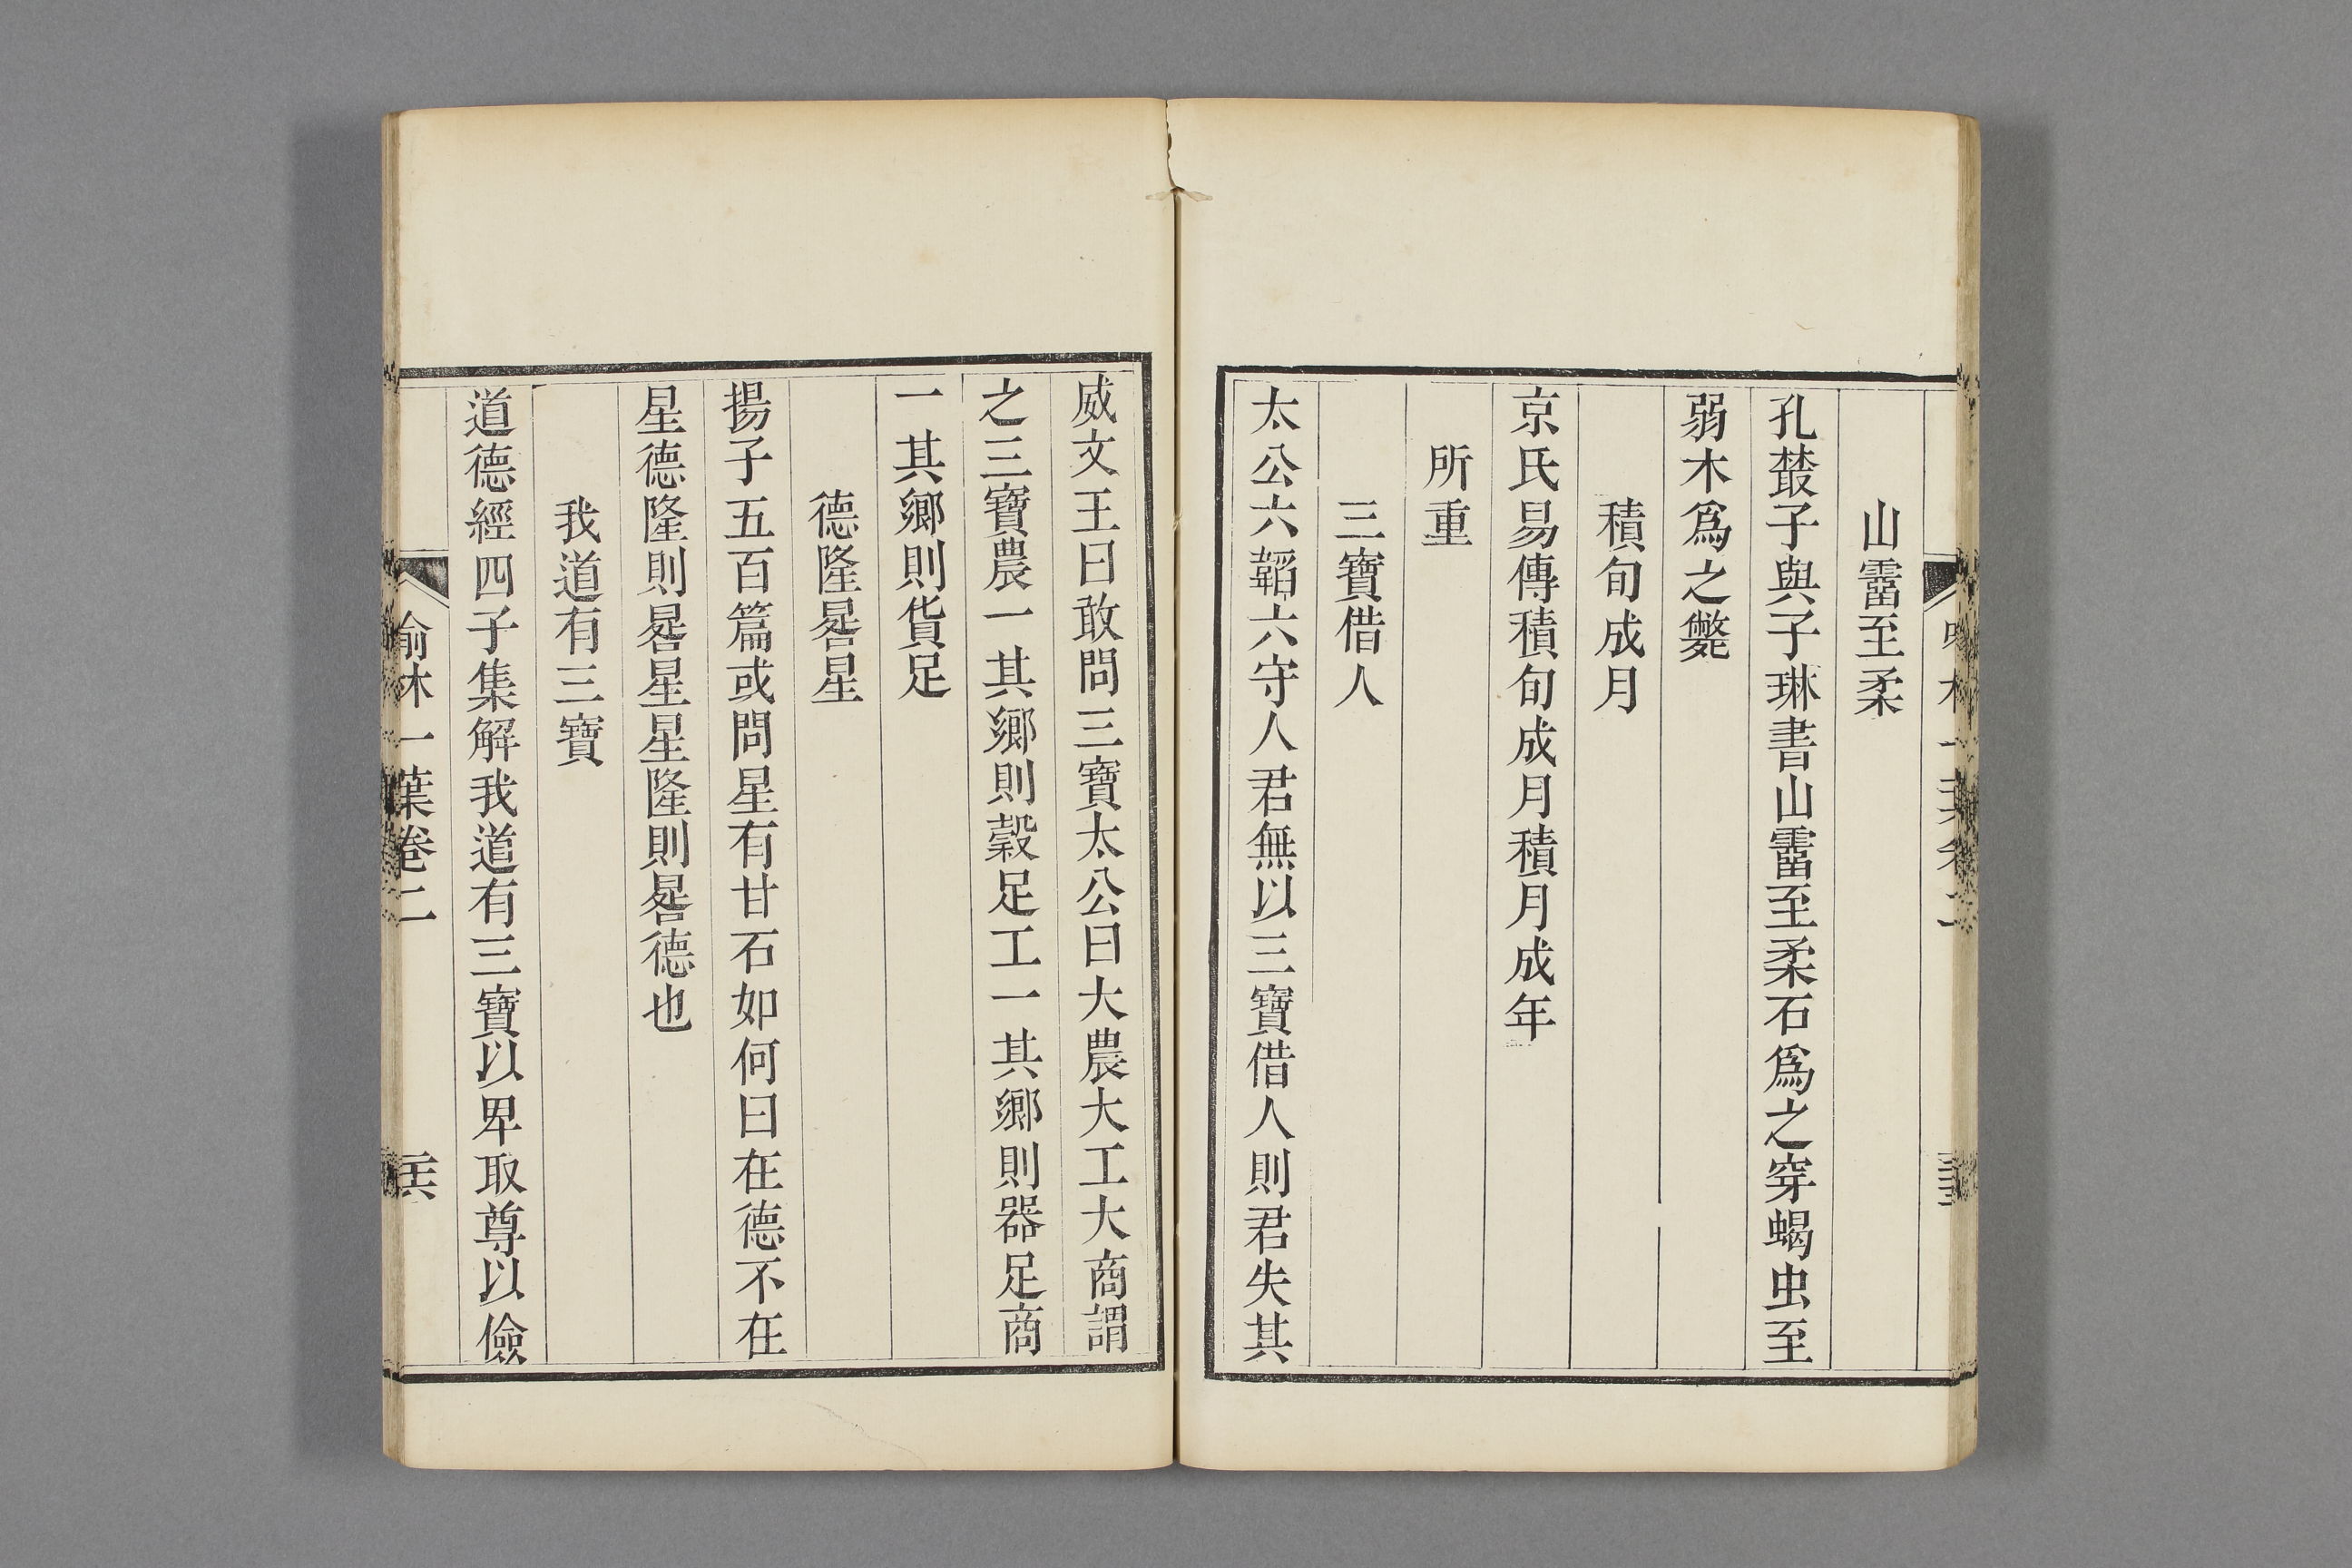 山霤至柔
孔叢子與子琳書山霤至柔石爲之穿蝎虫至
弱木爲之弊
積旬成月
京氏易傳積旬成月積月成年
所重
三寶借人
太公六韜六守人君無以三寶借人則君失其
威文王曰敢問三寶太公曰大農大工大商謂
之三寶農一其鄉則穀足工一其鄉則器足商
一其鄉則貨足
德隆晷星
揚子五百篇或問星有甘石如何曰在德不在
星德隆則晷星星隆則晷德也
我道有三寶
道德經四子集解我道有三寶以卑取尊以儉
俞林一葉卷二